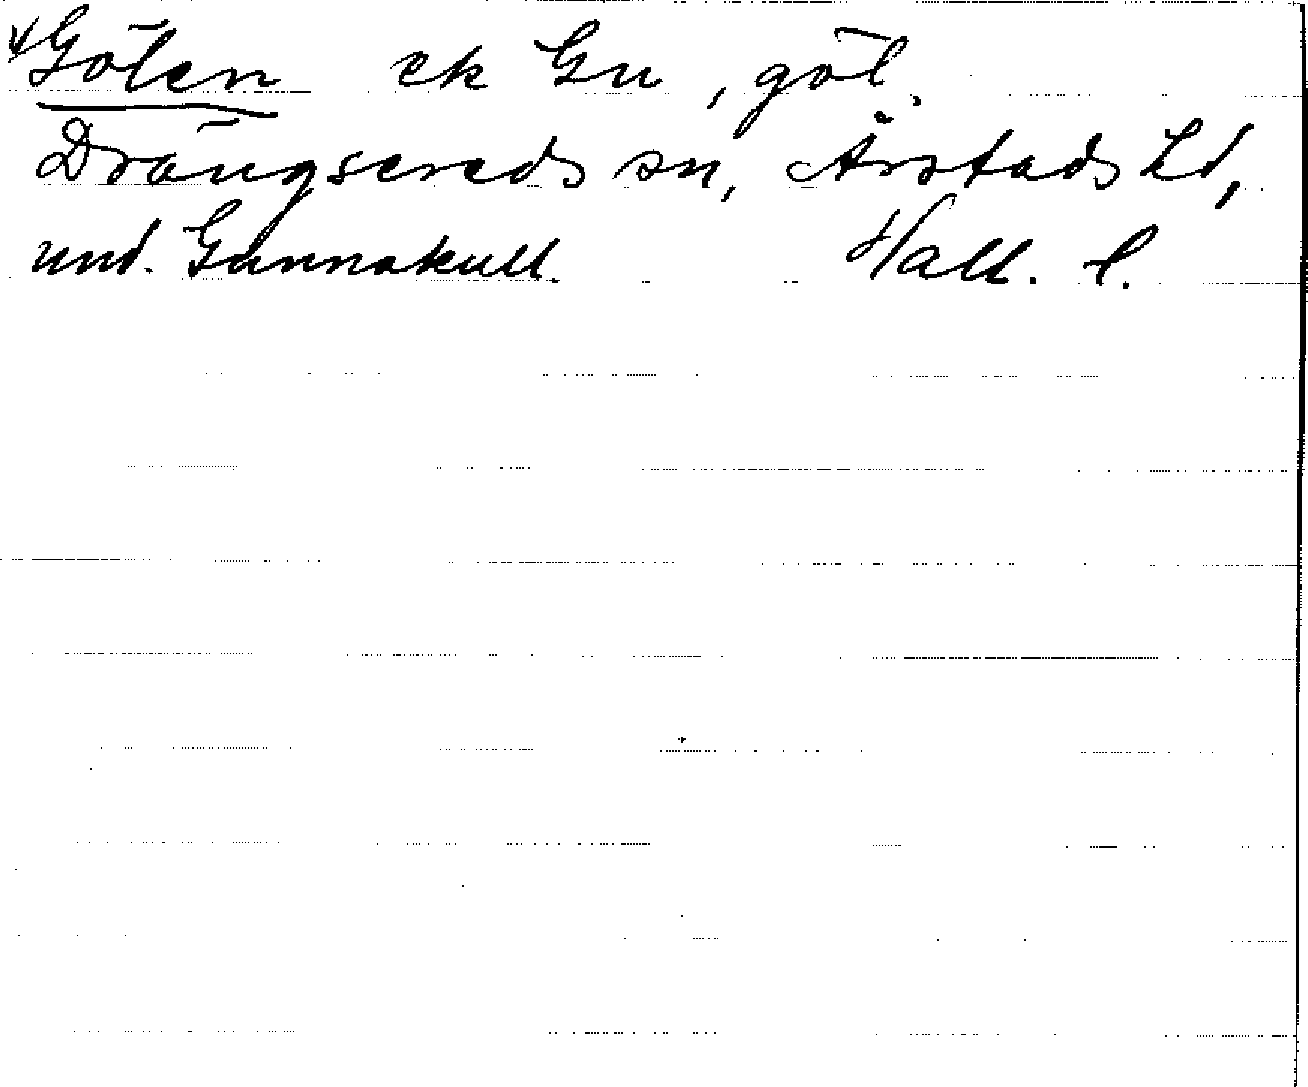 Gölen ek Gu, göl.
Drängsereds sn, Årstads hd,
und. Gunnakull. Hall. l.